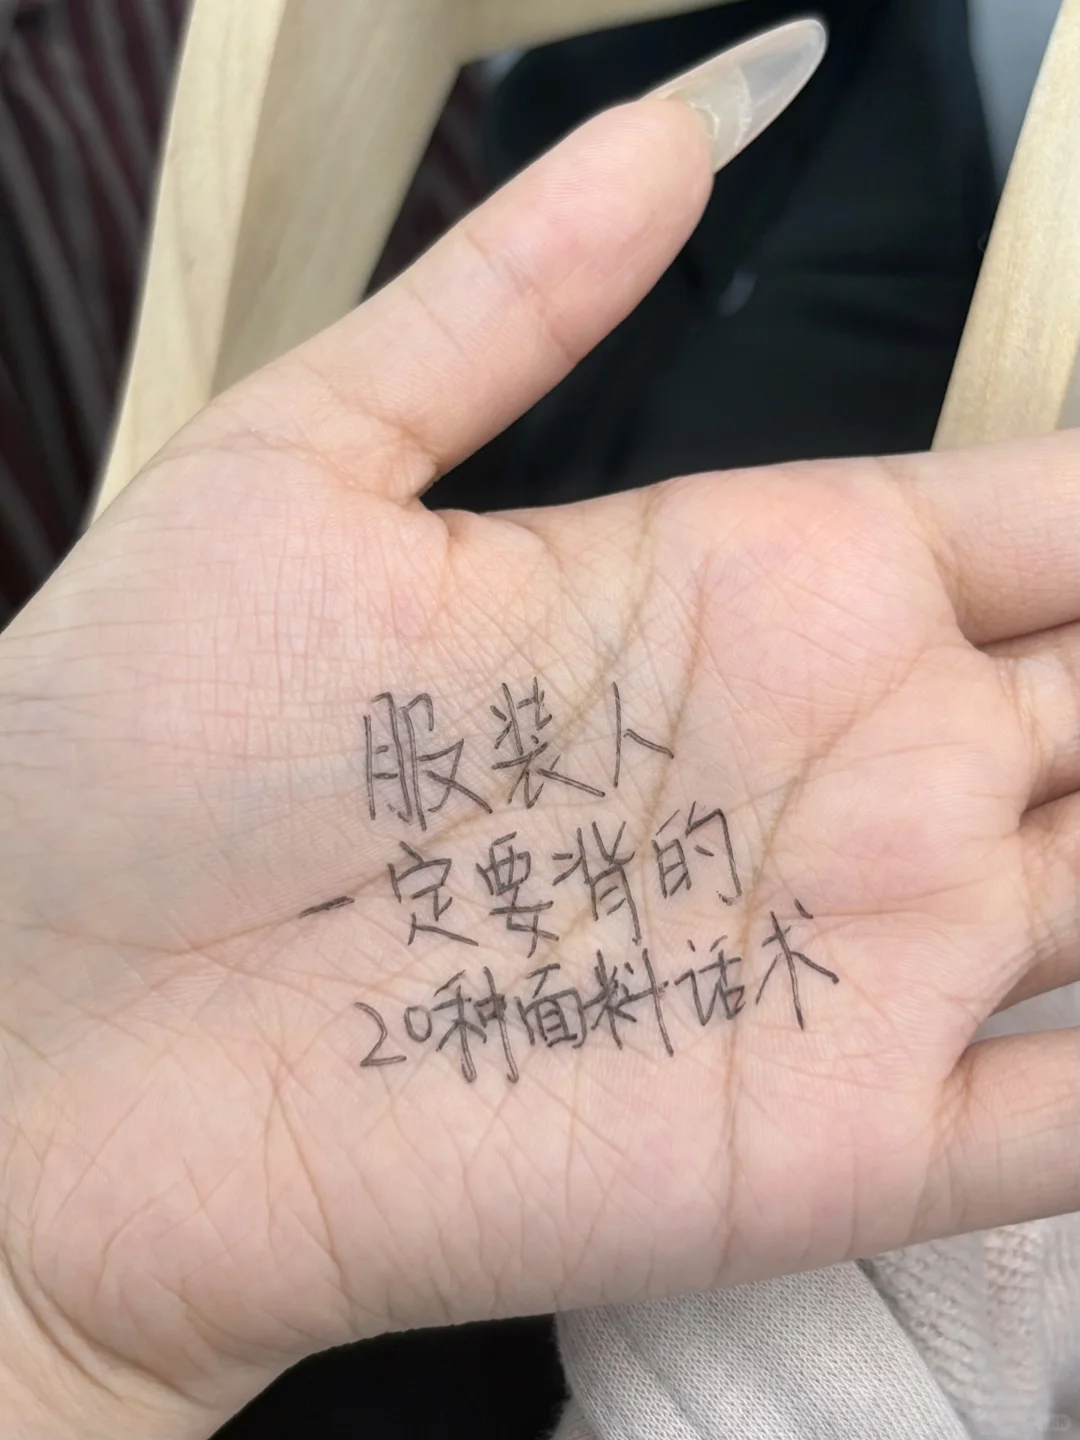 服装人
一定要背的
20种面料话术